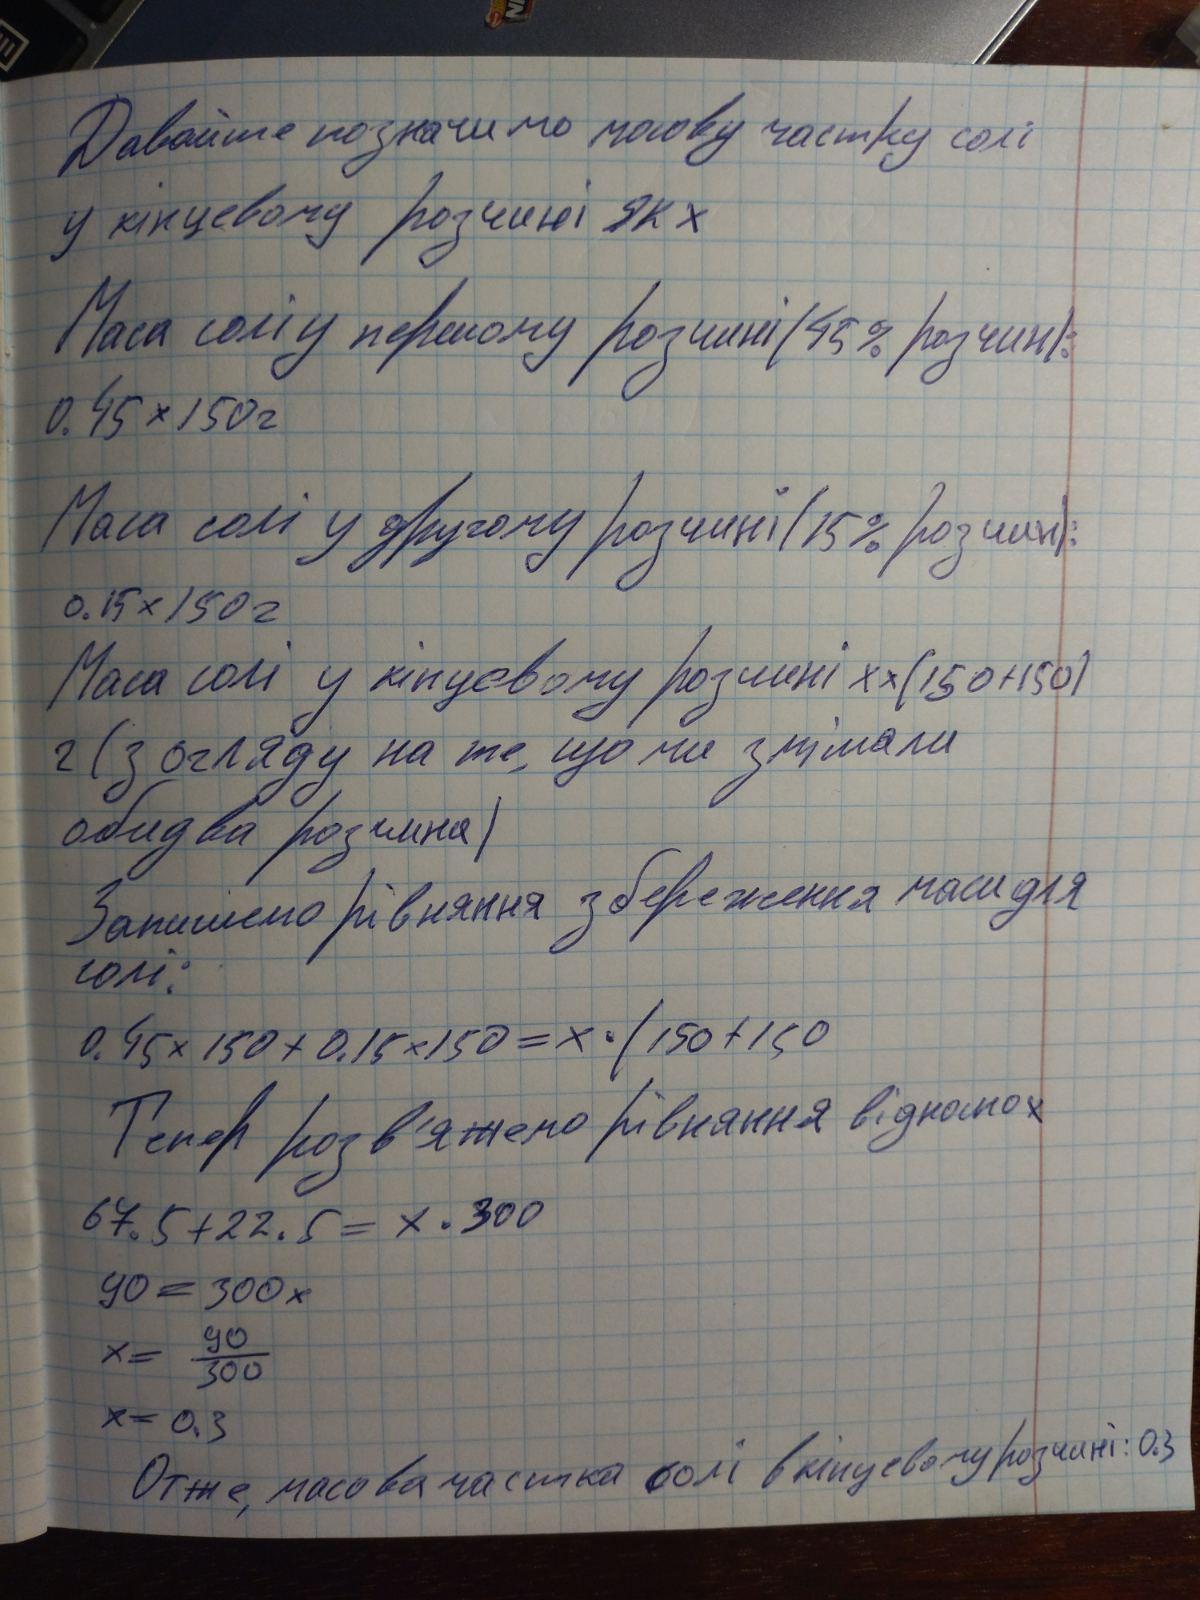 Давайте позначимо масову частку солі
у кінцевому розчині як х
Маса солі у першому розчині (45% розчин):
0.45 × 150г
Маса солі у другому розчині (15% розчин):
0.15 × 150г
Маса солі у кінцевому розчині х×(150+150)
г (з огляду на те, що ми змішали
обидва розчина)
Запишемо рівняння збереження маси для
солі:
0.45 × 150 + 0.15 × 150 = х · (150 + 150
Тепер розв'яжемо рівняння відносно х
67.5 + 22.5 = х · 300
90 = 300х
х = 90/300
х = 0.3
Отже, масова частка солі в кінцевому розчині: 0.3